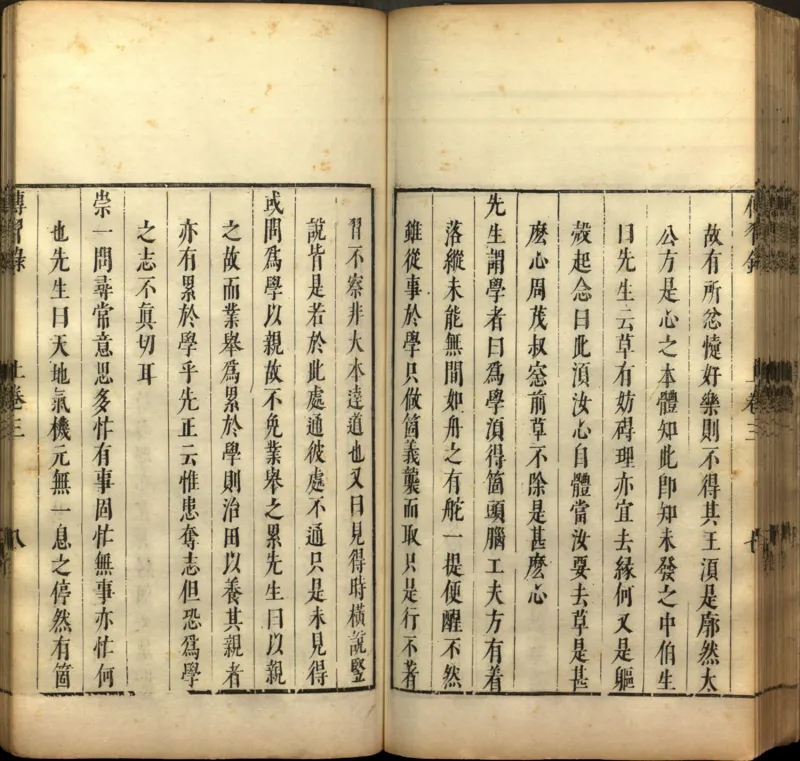 傳習錄 上卷三 七
故有所忿懥好樂則不得其正須是廓然太
公方是心之本體知此即知未發之中伯生
曰先生云草有妨碍理亦宜去緣何又是軀
殼起念曰此須汝心自體當汝要去草是甚
麽心周茂叔窓前草不除是甚麽心
先生謂學者曰為學須得箇頭腦工夫方有着
落縱未能無間如舟之有舵一提便醒不然
雖從事於學只做箇義襲而取只是行不著
習不察非大本達道也又曰見得時橫說竪
說皆是若於此處通彼處不通只是未見得
或問為學以親故不免業舉之累先生曰以親
之故而業舉為累於學則治田以養其親者
亦有累於學乎先正云惟患奪志但恐為學
之志不真切耳
崇一問尋常意思多忙有事固忙無事亦忙何
也先生曰天地氣機元無一息之停然有箇
傳習錄 上卷三 八